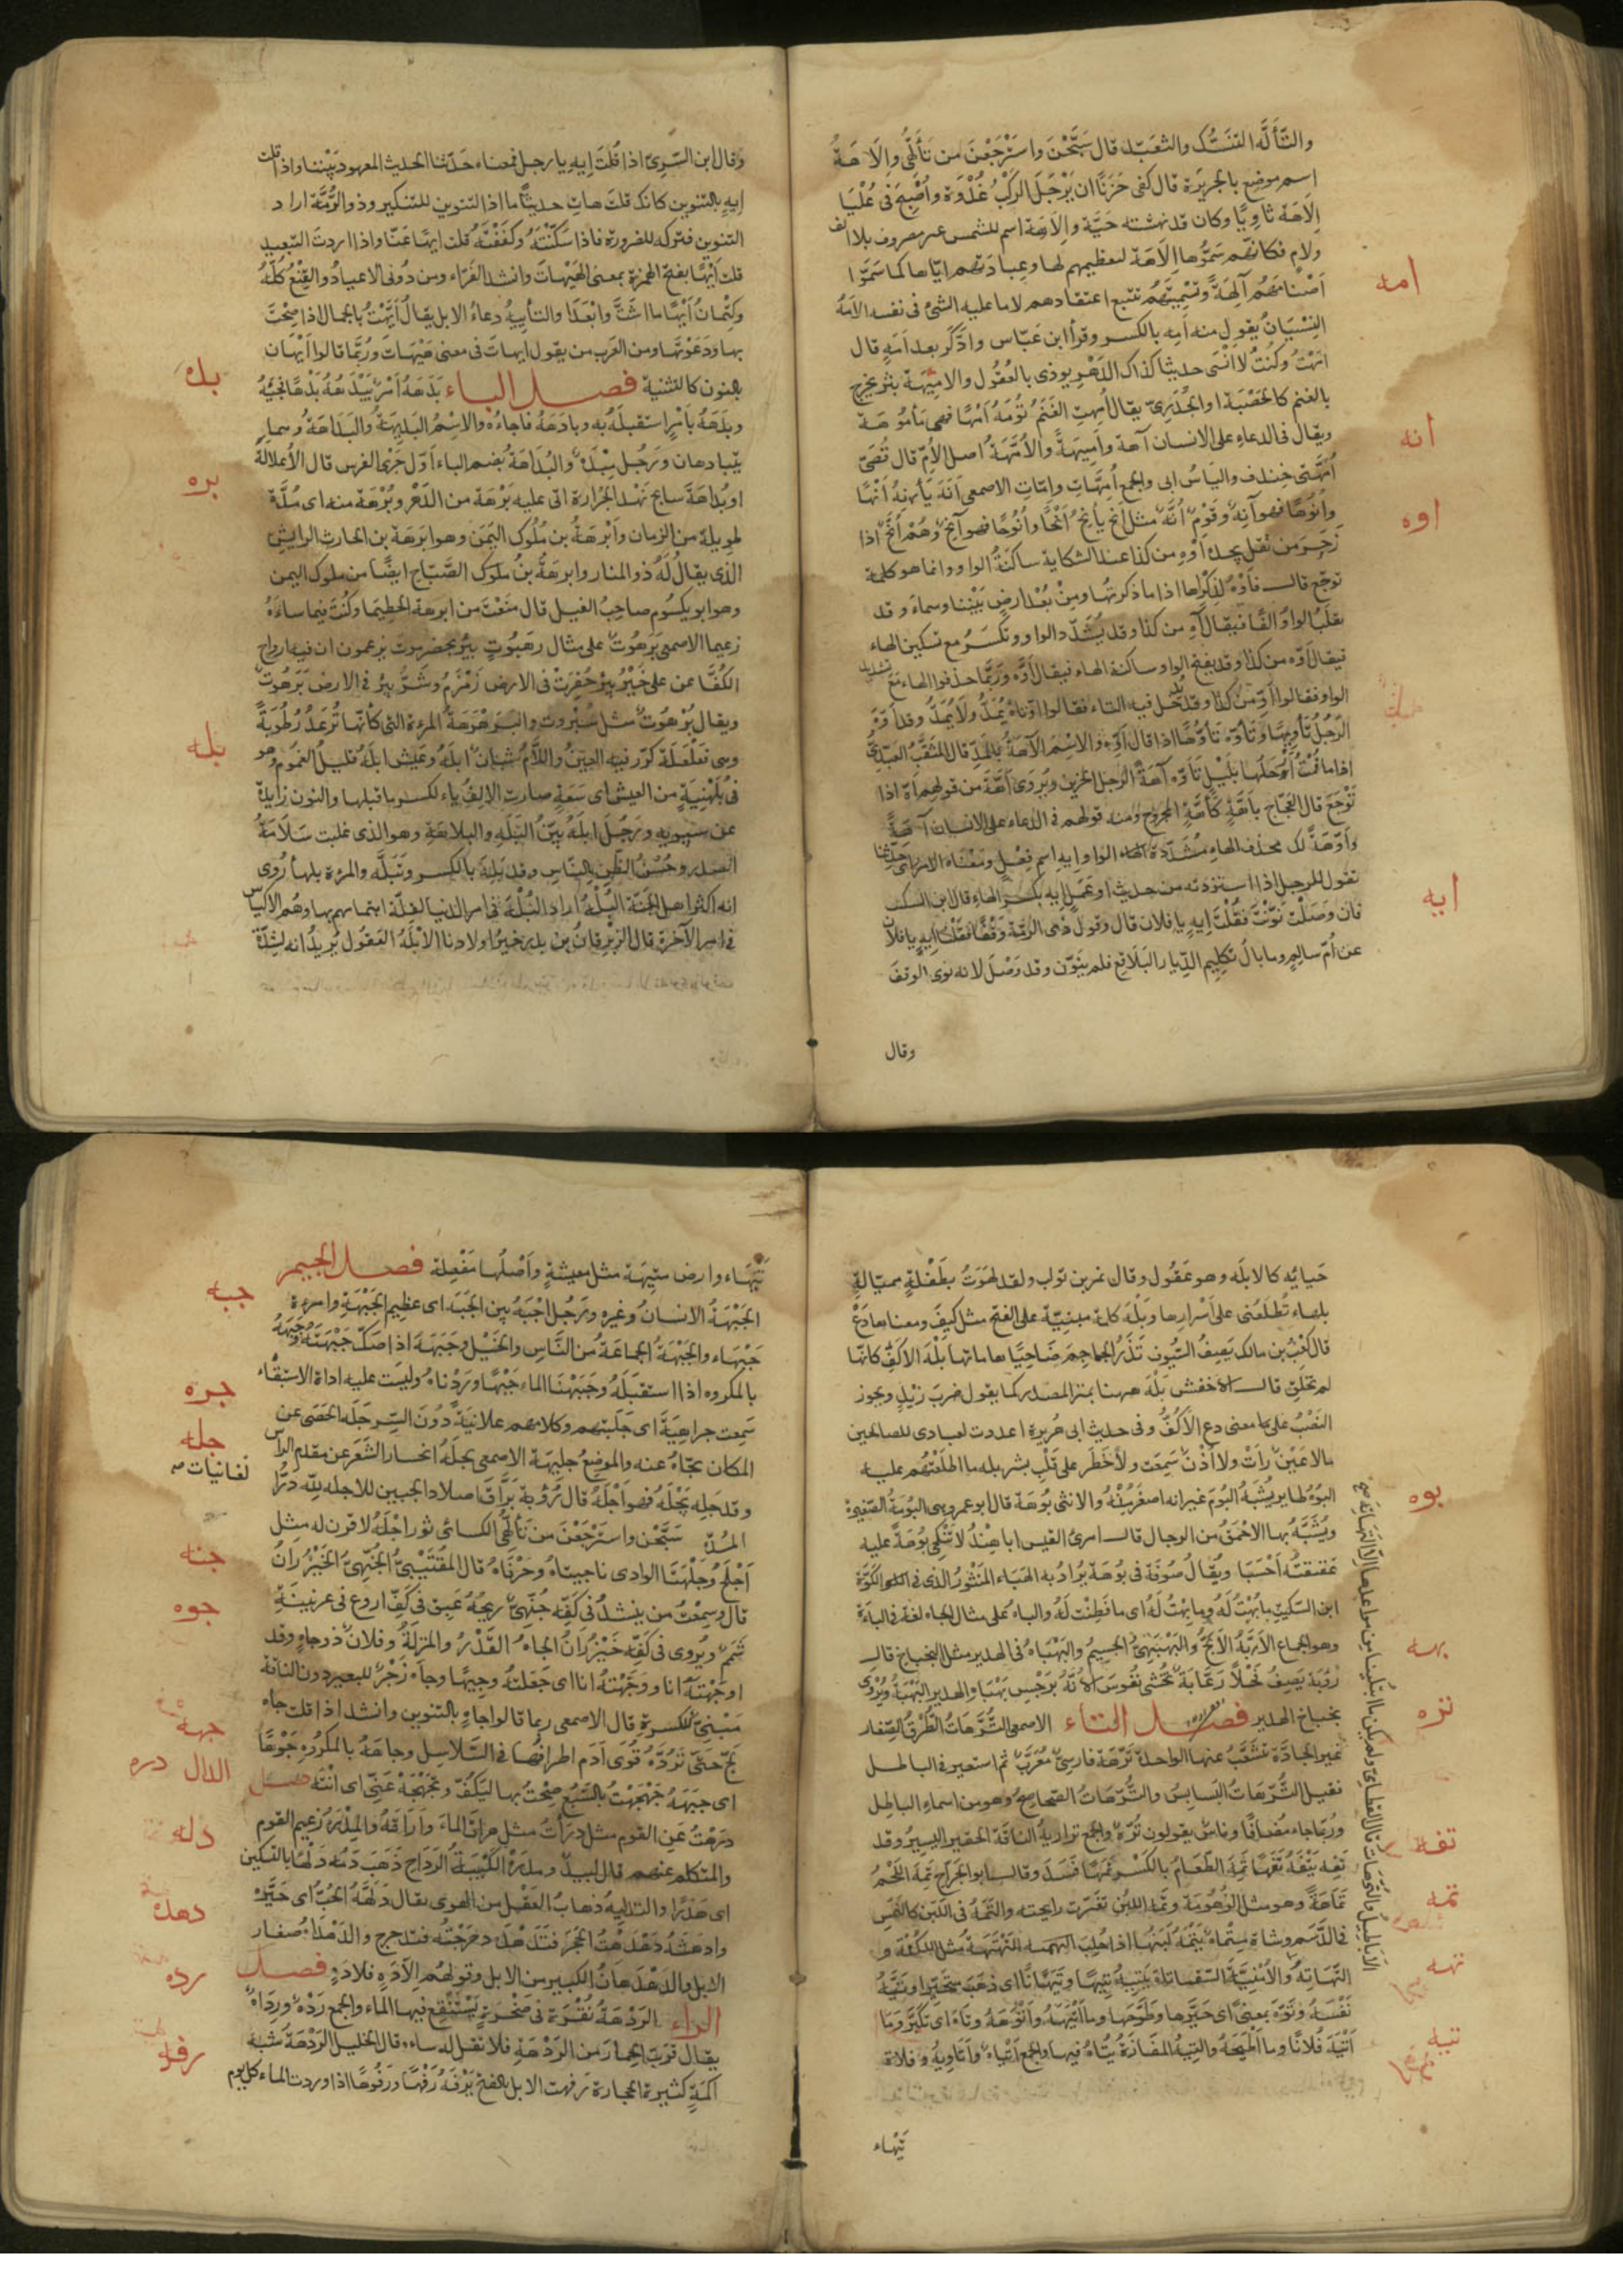 والتَّأَلُّه التنسّك والتعبّد قال سَبَّحْنَ واسْتَرْجَعْنَ من تَأَلُّهي وإلَاهَةُ
اسم موضع بالجزيرة قال كفى حَزَنًا ان يَرْحَلَ الرَكْبُ غُدْوَةً وأُصْبِحَ فى عُلْيَا
إلَاهَةَ ثاوِيًا وكان قد نهشته حَيَّة وإلَاهَة اسم للشمس غير مصروف بلا الف
ولام فكانهم سَمَّوْها إلَاهَة لتعظيمهم لها وعبادتهم اياها كما سَمَّوْا
امه
أصْنامَهُم آلِهَةً وتسْمِيَتُهُم تتبع اعتقادهم لا ما عليه الشئ فى نفسه الأمَهُ
النِسْيَانُ يقول منه أَمِهَ بالكسر وقرأ ابن عَبّاس وادَّكَر بعد أمَهٍ قال
أمِهْتُ وكُنْتُ لا أَنْسَى حديثا كذاك الدَهْر يوذى بالعُقُول والاميهَة بثر يخرج
بالغنم كالحَصْبَة او الجُدَرِىّ يقال أُمِهتِ الغَنَمُ تُؤْمَهُ أَمْهًا فهى مَأموُهَة
انه
ويقال فى الدعاء على الانسان آهَة وأَمِيهَةً والأُمَّهَةُ اصل الأُمّ قال قُصَىّ
أُمَّهَتى خِندف والياسُ ابى والجمع أُمَّهَات وامّات الاصمعى أَنَهَ يَأنِهُ أَنْهًا
اوه
وأُنُوهًا فهو آنِهٌ وقَوْمٌ أُنَّهٌ مثل أنَحَ يأنِحُ أَنْحًا وأُنُوحًا فهو آنِحٌ وهُمْ أُنَّحٌ اذا
زَحَرَ من ثقل يجده أوْهِ من كذا عند الشكاية ساكنَةُ الواو وانما هو كلمة
توجّع قال فَأَوْهِ لِذِكْراها اذا ما ذكرتُها ومِنْ بُعْد ارضٍ بَيْننا وسماء وقد
يقلَبُ الواوُ الفًا فيقال آهِ من كذا وقد يُشَدّد الواو ويُكسَرُ مع تسكين الهاء
فيقال أوِّه من كذا وقد يفتح الواو ساكنة الهاء فيقال أوَّه ورُبَّما حذفوا الهاء مَعَ تشديد
الواو فقالوا أوِّ من كذا وقد يُدْخل فيه التاء فقالوا اوَّتاهُ يُمَدُّ ولَا يُمَدُّ وقد أوَّهَ
الرَجُلُ تَأوِيهًا وتَأوَّه تَأوُّهًا اذا قال أوِّه والاسْمُ الآهَةُ بالمَدّ قال المُثَقَّبُ العَبْدِىُّ
اذا ما قُمْتُ أرْحَلُها بلَيْلٍ تَأوَّه آهَةَ الرجل الحزين ويُروَى أهَّةً من قولهم أهَّ اذا
تَوَجّعَ قال العَجّاج بأهَّةٍ كأهَّةِ المجروح ومنه قولهم فى الدعاء على الانسان آهَةً
وأوَّهَةً لك محذف الهاءِ مُشَدَّدة الواو إيهِ اسم فِعْلٍ ومَعْناه الامر اى حَدِّثنا
ايه
تقول للرجل اذا استزدته من حديث او عَمَلٍ إيهِ بكَسْر الهاءِ قال ابن السكيت
فان وَصَلْتَ نَوَّنْتَ فقُلْتَ إيهٍ يا فلان قال وقول ذى الرُمّة وَقَفْنا فقُلنا إيهِ
عن أُمّ سالمٍ وما بالُ تكليم الدِيار البَلاقِع فلم يُنوّن وقد وَصَلَ لانه نوى الوقفَ
وقال
وقال ابن السّرِىّ اذا قُلْتَ إيهِ يا رجل فمعناه حَدّثنا الحديث المعهود بَيْننا واذا قلت
إيهٍ بالتنوين كانك قلتَ هاتِ حديثًا ما اذا التنوين للتنكير وذو الرُمَّة اراد
التنوين فتركه للضرورة فاذا سَكَّنْتَهُ وكفَفْتَهُ قلت ايهًا عَنّا واذا اردتَ التبعيد
قلت أيْهًا بفتح الهمزة بمعنى هَيْهَاتَ وانشد الفَرّاء ومن دُونى الاعيادُ والقِنْعُ كلُّهُ
وكِتْمانُ أيْهًا ما أشَتَّ وأبْعَدَا والتأييهُ دعاءُ الابل يقال أيَّهْتُ بالجمال اذا صِحْتَ
بها ودَعَوْتَها ومن العَرَب من يقول ايهات فى معنى هَيْهَاتَ ورُبّما قالوا أيْهَانِ
بالنون كالتثنية فصل الباء بَدَهَهُ أمْرٌ يَبْدَهُهُ بَدْهًا فَجِئَهُ
بده
وبَدَهَهُ بأمْرٍ استقبلَهُ به وبادهَهُ فاجاءُه والاسْمُ البَدِيهَةُ والبَدَاهَةُ وهما
يتبادهان ورَجُل مِبْدَهٌ والبُدَاهَةُ بضم الباء أوّل جَرْى الفرس قال الأعشى
بره
او بُدَاهَةَ سابح نَهْدِ الجُزَارة اتى عليه بَرْهَة من الدَهْر وبُرْهَة منه اى مُدّةٌ
طويلة من الزمان وأبْرَهَةُ من مُلُوك اليَمَن وهو ابرَهَة بن الحارث الرايش
الذى يقال لَهُ ذو المنار وابرهَةُ بنُ الصَبّاح ايضًا من ملوك اليمن
وهو ابو يكسُوم صاحِبُ الفيل قال مَنَعْتَ من ابرهة الحَطِيمَا وكُنْتَ فيما ساءَهُ
زعيما الاصمعى بَرَهُوتُ على مثال رهَبُوتٍ بئرٌ بحضرموت يزعمون ان فيها ارواح
الكُفّار عن على خَيْرُ بِئرٍ حُفِرَتْ فى الارض زَمْزَمُ وشَرُّ بئر فى الارض بَرَهُوتُ
ويقال بُرْهُوتٌ مثل سُبْرُوت والبَرَهْرَهَةُ المرءة التى كأنّها تُرعَدُ رُطُوبَةً
بله
وهى فعَلْعَلَة كرّر فيه العينُ واللَّامُ شبابٌ ابلَهُ وعيش ابلَهُ قليلُ الغموم وهو
فى بُلَهْنِيَةٍ من العيش اى سَعَةٍ صارت الالِفُ ياء لكسر ما قبلها والنون زايدة
عن سيبويه ورَجُل ابلَهُ بَيّنُ البَلَه والبلاهَةِ وهو الذى غلبت سَلَامَةُ
الصدر وحُسْنُ الظنّ بالنّاس وقد بَلِهَ بالكسر وتَبَلّه والمرءة بلهاءُ رُوى
انه اكثر اهل الجنّة البُلْهُ اراد البُلْهَ فى امر الدنيا لقلّة اهتمامهم بها وهُم الأكياس
فى امر الآخرة قال الزِبْرِقان بن بدر خيرُ اولادنا الأبْلَهُ العَقُول يُريدُ انه لشِدّة
حَيايِه كالابلَه وهو عَقُول وقال نمر بن تولب ولقد لهَوْتُ بطَفْلةٍ ميّالةٍ
بلهاءَ تُطْلِعُنى على أسْرارها وبَلْهَ كلمة مبنيّة على الفتح مثل كيفَ ومعناها دَعْ
قال كَعْبُ بن مالك يَصِفُ السُيُوف تَذَرُ الجَماجِمَ ضاحِيًا هاماتُها بَلْهَ الأكفِّ كأنّها
لم تخلقِ قال الأخفش بَلْهَ ههنا بمنزلة المصدر كما يقول ضربَ زيْدٍ ويجوز
النَصْبُ على معنى دع الأكُفَّ وفى حديث ابى هُريرة اعددت لعبادى الصالحين
ما لا عَيْنٌ رَأتْ ولا أُذْنٌ سَمِعَتْ ولا خَطَر على قَلْبِ بشر بله ما اطلَعْتُهم عليه
بوه
البُوهُ طاير يُشبه البُومَ غير انه اصغرُ منْهُ والانثى بُوهَة قال ابو عمرٍ وهى البُومَةُ الصَغيرة
ويُشَبَّهُ بها الأحْمَقُ من الرجال قال امرئ القيس ايا هِنْدُ لا تَنْكِحى بُوهَةً عليه
عَقِيقَتُهُ أحْسَبَا ويُقالُ صُوفَة فى بُوهَة يُرادُ به الهَباء المَنْثُورُ الذى فى الكُوَّة
ابن السكيت ما بُهْتُ لَهُ وما بِهْتُ لَهُ اى ما فَطِنْت لَهُ والباهُ على مثال الجاه لغة فى الباءَةِ
بهه
وهو الجماع الأبَهُّ الأبَحُّ والبَهْبَهِىُّ الجسيمُ والبَهْبَاهُ فى الهدير مثل البخباخ قال
رؤبة يَصِفُ فَحْلًا
بخباخ الهدير فصل التاء الاصمعى التُّرَّهَاتُ الطُرُقُ الصِغار
تره
غير الجادّة تتشعّبُ عنها الواحدة تُرَّهَة فارسىّ مُعرّبٌ ثم استعير فى الباطل
فقيل التُّرَّهَاتُ البَسابِسُ والتُّرَّهَاتُ الصَحاصِحُ وهو من اسماء الباطِل
ورُبّما جاء مُضافًا وناسٌ يقولون تُرَّهٌ والجمع تراريهُ التافهُ الحقير اليسيرُ وقد
تفه
تَفِهَ يَتْفَهُ تَفَهًا تَمِهَ الطَعامُ بالكسر تَمَهًا فَسَدَ وقال ابو الجرّاح تَمِهَ اللَحْمُ
تمه
تَمَاهَةً وهو مثل الزُهُومَة وتمِهَ اللبنُ تغيّرت رايحته والتَمَهُ فى اللبن كالنَمَسِ
فى الدَسَم وشاة مِتْماهٌ يَتْمَهُ لَبَنُها اذا حُلِبَ التَهْتَهَةُ مثل اللُكْنَة و
تهته
التّهاتِهُ
تيه
نَفْسَهُ وتَوَّهَ بمعنىً اى حَيّرها وطَوّحَها وما أتْيَهَهُ وأتْوَهَهُ وتاهَ اى تكَبّر وما
أتْيَهَ فُلانًا وما أطْيَحَهُ والتِيهُ المفازَةُ يُتَاهُ فيها والجمع أتْياهٌ وأتاوِيهُ وفلاة
تَيْهَاء
تَيْهَاء وارض متِيهَة مثل معيشةٍ وأصْلُها مَفْعِلة فصل الجيم
جبه
الجَبْهَةُ الانسان وغيره ورَجُل اجْبَهُ بين الجَبَه اى عظِيم الجَبْهَةِ وامرءة
جَبْهَاء والجَبْهَةُ الجماعَةُ من النّاس والخَيْل وجَبَهَهُ اذا صَكَّ جَبْهَتَهُ وجَبَهَهُ
بالمكروه اذا استقبَلَهُ وجَبَهْنَا الماءَ جَبْهًا وَرَدْناهُ وليست عليه اداة الاستقاء
جره
سَمِعت جراهِيَةَ اى جَلَبتهم وكلامهم علانِيَةً دُونَ السِرّ جَلَهَ الحَصَى عن
جله
المكان نحّاهُ عنه والموضِعُ جلِيهَة الاصمعى الجَلَهُ انحسار الشَعَر عن مقدّم الرأس
وقد جَلِهَ يَجْلَهُ فهو أجْلَهُ قال رُؤبة بَرّاقَ اصلادِ الجبين الأجْلَهِ للّه دَرُّ
المُدَّهِ سَبَّحْنَ واسترْجَعْنَ من تَألُّهى الكسائى ثور اجْلَهُ لا قرن له مثل
جنه
أجْلَحَ وجَلْهَتَا الوادى ناحيتاهُ وحَرْفاهُ قال القُتَيْبِىُّ الجُنَهِىُّ الخَيْزُرانُ
قال وسمِعْتُ من ينشدُ فى كَفِّه جُنَهِىٌّ رِيحُهُ عَبِقٌ فى كَفِّ أروعَ فى عِرْنِينِه
جوه
شَمَمٌ ويُروى فى كَفِّه خَيْزُرَانُ الجاهُ القَدْرُ والمنزلَةُ وفلانٌ ذو جاهٍ وقد
اوجَهْتُهُ انا ووجّهْتُهُ انا اى جَعَلتهُ وجِيهًا وجاهْ زَجْرٌ للبعير دون الناقة
مَبْنِىٌّ على الكسرة قال الاصمعى ربما قالوا جاهٍ بالتنوين وانشد اذا قلت جاهِ
لَجَّ حتّى تَرُدّهُ قُوَى أدَمٍ اطرافُها فى السَلاسِل وجاهَهُ بالمكرُوه جَوْهًا
جهه
اى جَبَهَهُ جَهْجَهْتُ بالسَبُع صِحْتُ بها ليَكُفَّ وتَجَهْجَهْ عَنّى اى انْتَه فصل
الدال
دره
دَرَهْتُ عن القوم مثل دَرَأتُ مثل هراق الماءَ وأراقَهُ والمِدْرَهُ زَعِيم القوم
والمتكلم عنهم قال لبيد ومِدْرَهُ الكَتِيبَة الرَدَاح ذَهَبَ دَمُهُ دَلْهًا بالتسكين
دله
اى هَدْرًا والتدليهُ ذهابُ العَقْل من الهوى يقال دَلّهَهُ الحُبُّ اى حَيّرهُ
وادهَشَهُ دَهْدَهْتُ الحجَرَ فتَدَهْدَهَ دحرَجْتُه فتدحرج والدَهْدَاهُ صغار
دهده
الابل والدَهْدَهانُ الكبير من الابل وقولهُم إلَّادَهٍ فلا دَهٍ فصل
الراء الرَدْهَةُ نُقْرَة فى صَخْرَةٍ يَسْتَنْقِعُ فيها الماء والجمع رَدْهٌ ورِدَاهٌ
رده
يقال قرّب الحِمارَ من الرَدْهَةِ فلا تقل له سأ وقال الخليل الرَدْهَةُ شبهُ
أكَمَةٍ كثيرة الحجارة رفهت الابل بالفتح تَرْفَهُ رَفْهًا ورُفُوهًا اذا وردت الماء كل يوم
رفه